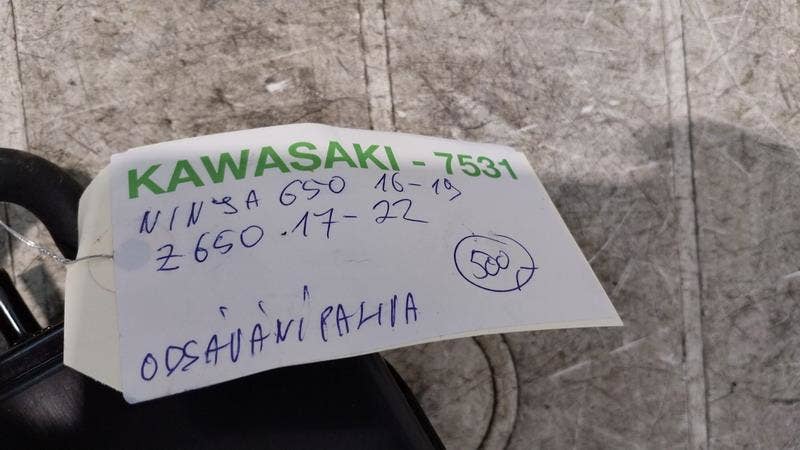 KAWASAKI - 7531
NINJA 650 16-19
Z650.17-22
500
ODSÁVÁNÍ PALIVA